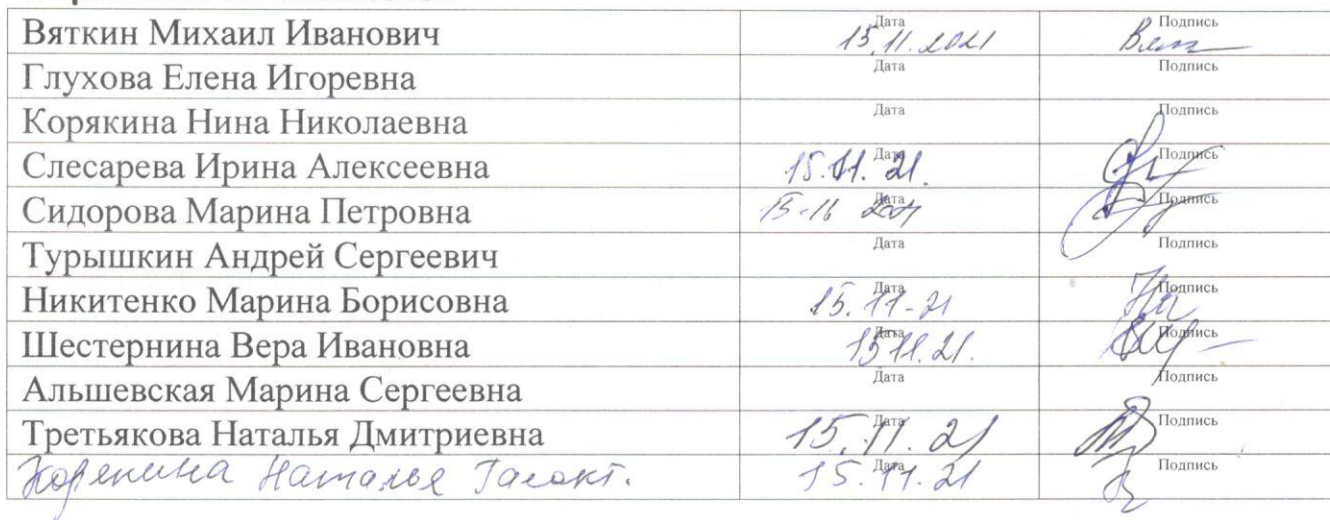 Вяткин Михаил Иванович Дата 15.11.2021 Подпись
Глухова Елена Игоревна Дата Подпись
Корякина Нина Николаевна Дата Подпись
Слесарева Ирина Алексеевна Дата 15.11.21. Подпись
Сидорова Марина Петровна Дата Подпись
Турышкин Андрей Сергеевич Дата Подпись
Никитенко Марина Борисовна Дата 15.11-21 Подпись
Шестернина Вера Ивановна Дата 15.11.21. Подпись
Альшевская Марина Сергеевна Дата Подпись
Третьякова Наталья Дмитриевна Дата 15.11.21 Подпись
Наталья Дата 15.11.21 Подпись